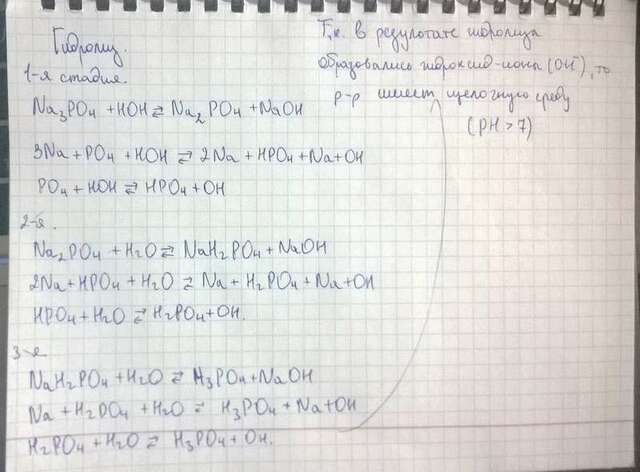 Гидролиз.
1-я стадия.
Na₃PO₄ + HOH ⇄ Na₂PO₄ + NaOH
3Na + PO₄ + HOH ⇄ 2Na + HPO₄ + Na + OH
PO₄ + HOH ⇄ HPO₄ + OH
2-я.
Na₂PO₄ + H₂O ⇄ NaH₂PO₄ + NaOH
2Na + HPO₄ + H₂O ⇄ Na + H₂PO₄ + Na + OH
HPO₄ + H₂O ⇄ H₂PO₄ + OH.
3-я
NaH₂PO₄ + H₂O ⇄ H₃PO₄ + NaOH
Na + H₂PO₄ + H₂O ⇄ H₃PO₄ + Na + OH
H₂PO₄ + H₂O ⇄ H₃PO₄ + OH.
Т.к. в результате гидролиза
образовались гидроксид-ионы (OH⁻), то
р-р имеет щелочную среду
(PH > 7)